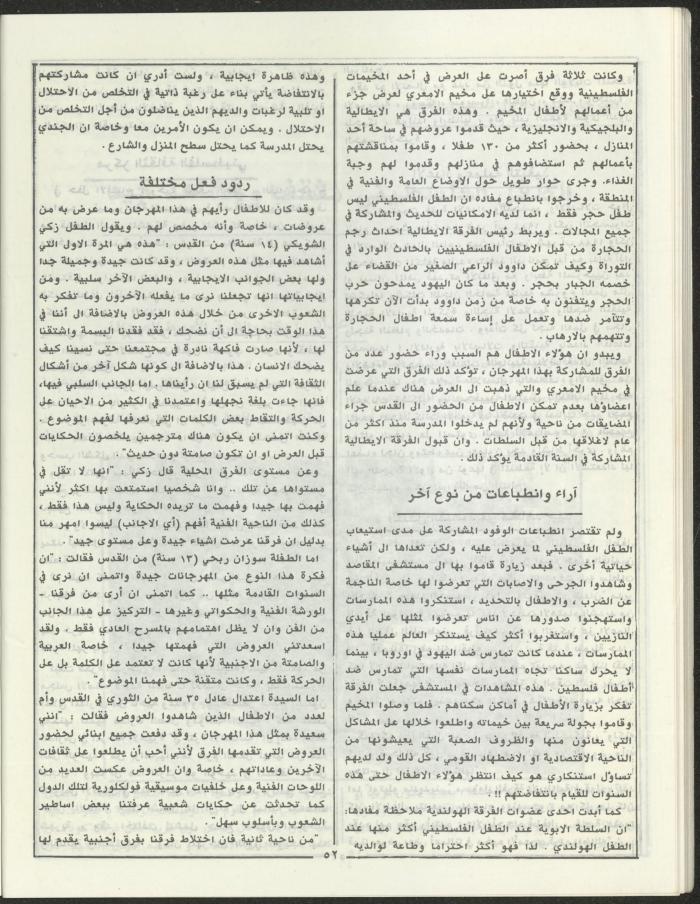 وكانت ثلاثة فرق أصرت على العرض في أحد المخيمات
الفلسطينية ووقع اختيارها عل مخيم الامعري لعرض جزء
من أعمالهم لأطفال المخيم . وهذه الفرق هي الايطالية
والبلجيكية والانجليزية ، حيث قدموا عروضهم في ساحة أحد
المنازل ، بحضور أكثر من ١٣٠ طفلا ، وقاموا بمناقشتهم
بأعمالهم ثم استضافوهم في منازلهم وقدموا لهم وجبة
الغذاء. وجرى حوار طويل حول الاوضاع العامة والفنية في
المنطقة ، وخرجوا بانطباع مفاده ان الطفل الفلسطيني ليس
طفل حجر فقط ، انما لديه الامكانيات للحديث والمشاركة في
جميع المجالات . ويربط رئيس الفرقة الايطالية احداث رجم
الحجارة من قبل الاطفال الفلسطينيين بالحادث الوارد في
التوراة وكيف تمكن داوود الراعي الصغير من القضاء عل
خصمه الجبار بحجر . وبعد ما كان اليهود يمدحون حرب
الحجر ويتفنون به خاصة من زمن داوود بدأت الآن تكرهها
وتتآمر ضدها وتعمل عل إساءة سمعة اطفال الحجارة
وتتهمهم بالارهاب .
ويبدو ان هؤلاء الاطفال هم السبب وراء حضور عدد من
الفرق للمشاركة بهذا المهرجان ، تؤكد ذلك الفرق التي عرضت
في مخيم الامعري والتي ذهبت ال العرض هناك عندما علم
اعضاؤها بعدم تمكن الاطفال من الحضور ال القدس جراء
المضايقات من ناحية ولأنهم لم يدخلوا المدرسة منذ اكثر من
عام لاغلاقها من قبل السلطات . وان قبول الفرقة الايطالية
المشاركة في السنة القادمة يؤكد ذلك .
آراء وانطباعات من نوع آخر
ولم تقتصر انطباعات الوفود المشاركة عل مدى استيعاب
الطفل الفلسطيني لما يعرض عليه ، ولكن تعداها ال أشياء
حياتية أخرى . فبعد زيارة قاموا بها ال مستشفى المقاصد
وشاهدوا الجرحى والاصابات التي تعرضوا لها خاصة الناجمة
عن الضرب ، والاطفال بالتحديد ، استنكروا هذه الممارسات
واستهجنوا صدورها عن اناس تعرضوا لمثلها عل أيدي
النازيين ، واستغربوا أكثر كيف يستنكر العالم عمليا هذه
الممارسات ، عندما كانت تمارس ضد اليهود في اوروبا ، بينما
لا يحرك ساكنا تجاه الممارسات نفسها التي تمارس ضد
أطفال فلسطين . هذه المشاهدات في المستشفى جعلت الفرقة
تفكر بزيارة الأطفال في أماكن سكناهم . فلما وصلوا المخيم
وقاموا بجولة سريعة بين خيماته واطلعوا خلالها عل المشاكل
التي يعانون منها والظروف الصعبة التي يعيشونها من
الناحية الاقتصادية او الاضطهاد القومي ، كل ذلك ولد لديهم
تساؤل استنكاري هو كيف انتظر هؤلاء الاطفال حتى هذه
السنوات للقيام بانتفاضتهم !! .
كما أبدت احدى عضوات الفرقة الهولندية ملاحظة مفادها:
"ان السلطة الابوية عند الطفل الفلسطيني أكثر منها عند
الطفل الهولندي . لذا فهو أكثر احتراما وطاعة لوالديه
وهذه ظاهرة ايجابية ، ولست أدري ان كانت مشاركتهم
بالانتفاضة يأتي بناء عل رغبة ذاتية في التخلص من الاحتلال
او تلبية لرغبات والديهم الذين يناضلون من أجل التخلص من
الاحتلال . ويمكن ان يكون الأمرين معا وخاصة ان الجندي
يحتل المدرسة كما يحتل سطح المنزل والشارع .
ردود فعل مختلفة
وقد كان للاطفال رأيهم في هذا المهرجان وما عرض به من
عروضات ، خاصة وأنه مخصص لهم . ويقول الطفل زكي
الشويكي (١٤ سنة) من القدس : "هذه هي المرة الاول التي
أشاهد فيها مثل هذه العروض ، وقد كانت جيدة وجميلة جدا
ولها بعض الجوانب الايجابية ، والبعض الآخر سلبية . ومن
ايجابياتها انها تجعلنا نرى ما يفعله الآخرون وما تفكر به
الشعوب الاخرى من خلال هذه العروض بالاضافة ال أننا في
هذا الوقت بحاجة ال أن نضحك ، فقد فقدنا البسمة واشتقنا
لها ، لأنها صارت فاكهة نادرة في مجتمعنا حتى نسينا كيف
يضحك الانسان . هذا بالاضافة ال كونها شكل آخر من أشكال
الثقافة التي لم يسبق لنا ان رأيناها . اما الجانب السلبي فيها،
فانها جاءت بلغة نجهلها واعتمدنا في الكثير من الاحيان عل
الحركة والتقاط بعض الكلمات التي نعرفها لفهم الموضوع .
وكنت اتمنى ان يكون هناك مترجمين يلخصون الحكايات
قبل العرض او ان تكون صامتة دون حديث" .
وعن مستوى الفرق المحلية قال زكي : "انها لا تقل في
مستواها عن تلك .. وانا شخصيا استمتعت بها اكثر لأنني
فهمت بها جيدا وفهمت ما تريده الحكاية وليس هذا فقط ،
كذلك من الناحية الفنية أفهم (أي الاجانب) ليسوا امهر منا
بدليل ان فرقنا عرضت اشياء جيدة وعل مستوى جيد" .
اما الطفلة سوزان ربحي (١٣ سنة) من القدس فقالت : "ان
فكرة هذا النوع من المهرجانات جيدة واتمنى ان نرى في
السنوات القادمة مثلها .. كما اتمنى ان أرى من فرقنا -
الورشة الفنية والحكواتي وغيرها - التركيز عل هذا الجانب
من الفن وان لا يظل اهتمامهم بالمسرح العادي فقط . ولقد
اسعدتني العروض التي فهمتها جيدا ، خاصة العربية
والصامتة من الاجنبية لأنها كانت لا تعتمد عل الكلمة بل عل
الحركة فقط ، وكانت متقنة حتى فهمنا الموضوع" .
اما السيدة اعتدال عادل ٣٥ سنة من الثوري في القدس وأم
لعدد من الاطفال الذين شاهدوا العروض فقالت : "انني
سعيدة بمثل هذا المهرجان ، وقد دفعت جميع ابنائي لحضور
العروض التي تقدمها الفرق لأنني أحب أن يطلعوا عل ثقافات
الآخرين وعاداتهم ، خاصة وان العروض عكست العديد من
اللوحات الفنية وعل خلفيات موسيقية فولكلورية لتلك الدول
كما تحدثت عن حكايات شعبية عرفتنا ببعض اساطير
الشعوب وبأسلوب سهل" .
"من ناحية ثانية فان اختلاط فرقنا بفرق أجنبية يقدم لها
٥٢